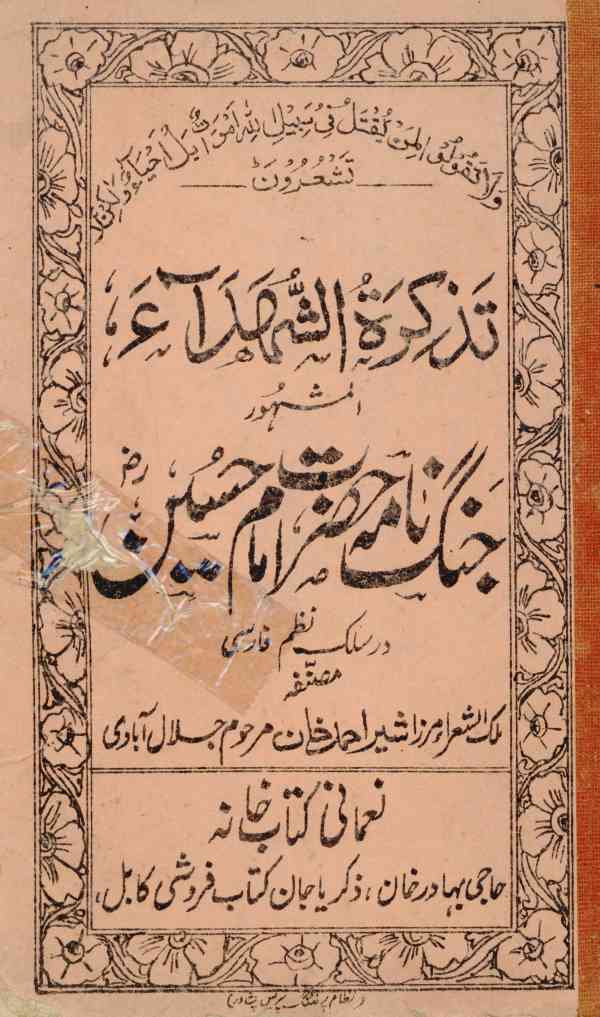 ولا تقولوا لمن يُقتل في سبيل الله اموات بل احياء ولكن لا
تشعرون
تَذكِرَةُ الشُّهَدَآءَ
المشہور
جنگ نامہ حضرت امام حسین رض
در سلک نظم فارسی
مصنّفہ
ملک الشعراء مرزا شیر احمد خان مرحوم جلال آبادی
نعمانی کتاب خانہ
حاجی بہادر خان، ذکریا جان کتاب فروشی کابل،
(نظام پرنٹنگ پریس پشاور)